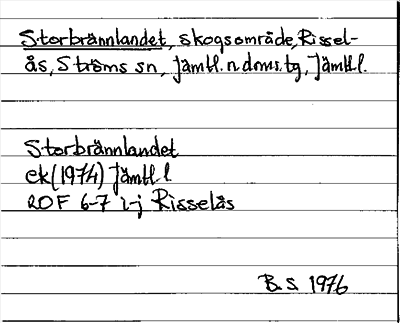 Storbrännlandet, skogsområde, Rissel-
ås, Ströms sn, Jämtl. n. doms. tg, Jämtl. l.
Storbrännlandet
ek (1974) Jämtl. l
ROF 6-7 i-j Risselås
B. S. 1976